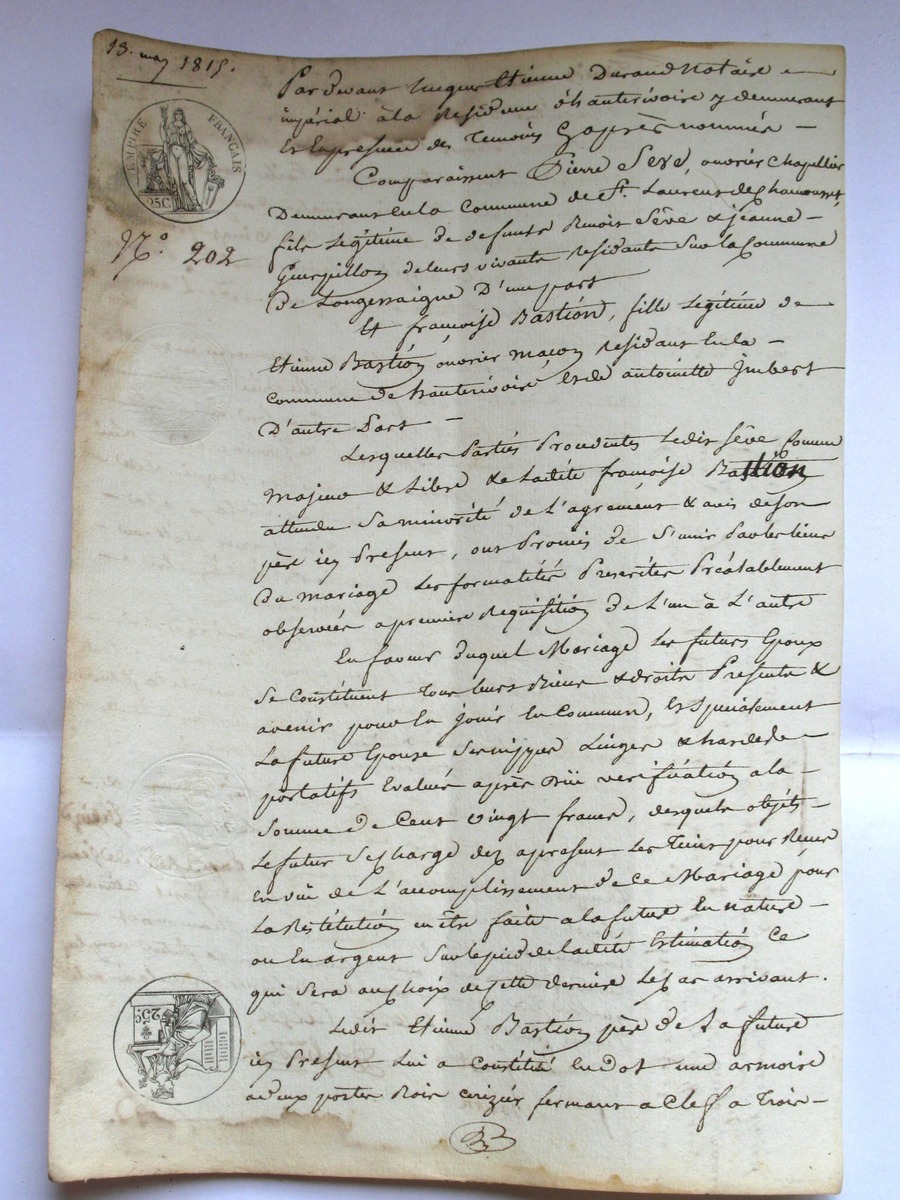 13. may 1815.
EMPIRE FRANÇAIS
25C
N.o 202
Pardevant hugues Etienne Durand Notaire
impérial à la Residence d'hauterivoire y demeurant
Et En presence des Temoins Cy après nommés —
Comparaissent Pierre Seve, ouvrier Chapellier
Demeurant En la Commune de St. Laurent de Chamousset,
fils Legitime de defunts Benoit Sève & jeanne —
Guerpillon de leurs vivants residants Sur la Commune
De Longessaigne D'une part
Et françoise Bastion, fille Legitime de
Etienne Bastion ouvrier maçon residant En la —
Commune de hauterivoire et de antoinette Imbert
D'autre Part —
Lesquelles Parties Procedentes Ledit Sève Comme
majeur & Libre & Ladite françoise Bastion
attendu Sa minorité de L'agrement & avis de son
père icy Present, ont Promis de S'unir Par les liens
du mariage Les formalités Prescrites Préalablement
observées a premiere Requisition de L'un à L'autre
En faveur duquel Mariage Les futurs Epoux
Se Constituent Tous leurs Biens & droits Presents &
avenir pour En jouir En Commun, et Specialement
La future Epouse Ses nippes Linges & hardes
portatifs Evalués après Duë verification a la —
Somme de Cent vingt francs, desquels objets —
Le futur Se Charge dez apresent Les Tenir pour Reçus
En vüe de L'accomplissement de Ce Mariage pour
La Restitution en être faite a la future En nature —
ou En argent Sur le pied de ladite Estimation Ce
qui Sera au Choix de Cette derniere Le Cas arrivant.
Ledit Etienne Bastion père de La future
icy Present Lui a Constitué En dot une armoire
a deux portes Bois cerizier fermant a Clef a Trois —
25c